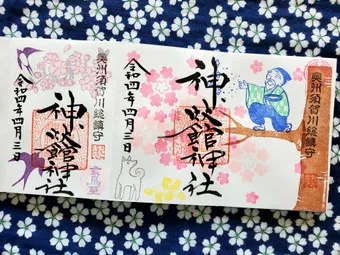 奥州須賀川総鎮守
神炊館神社
令和四年四月三日
奥州須賀川総鎮守
神炊館神社
令和四年四月三日